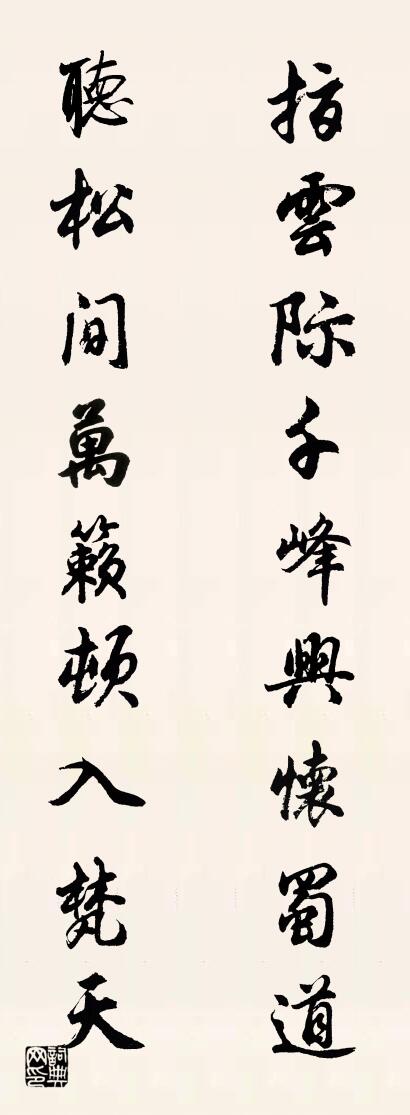 指雲際千峰興懷蜀道
聽松間萬籟頓入梵天
詞典网印